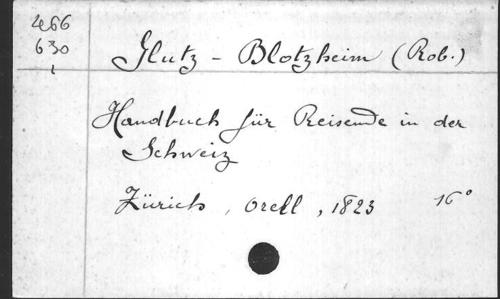 466
630
1
Glutz - Blotzheim (Rob.)
Handbuch für Reisende in der
Schweiz
Zürich, Orell, 1823 16°